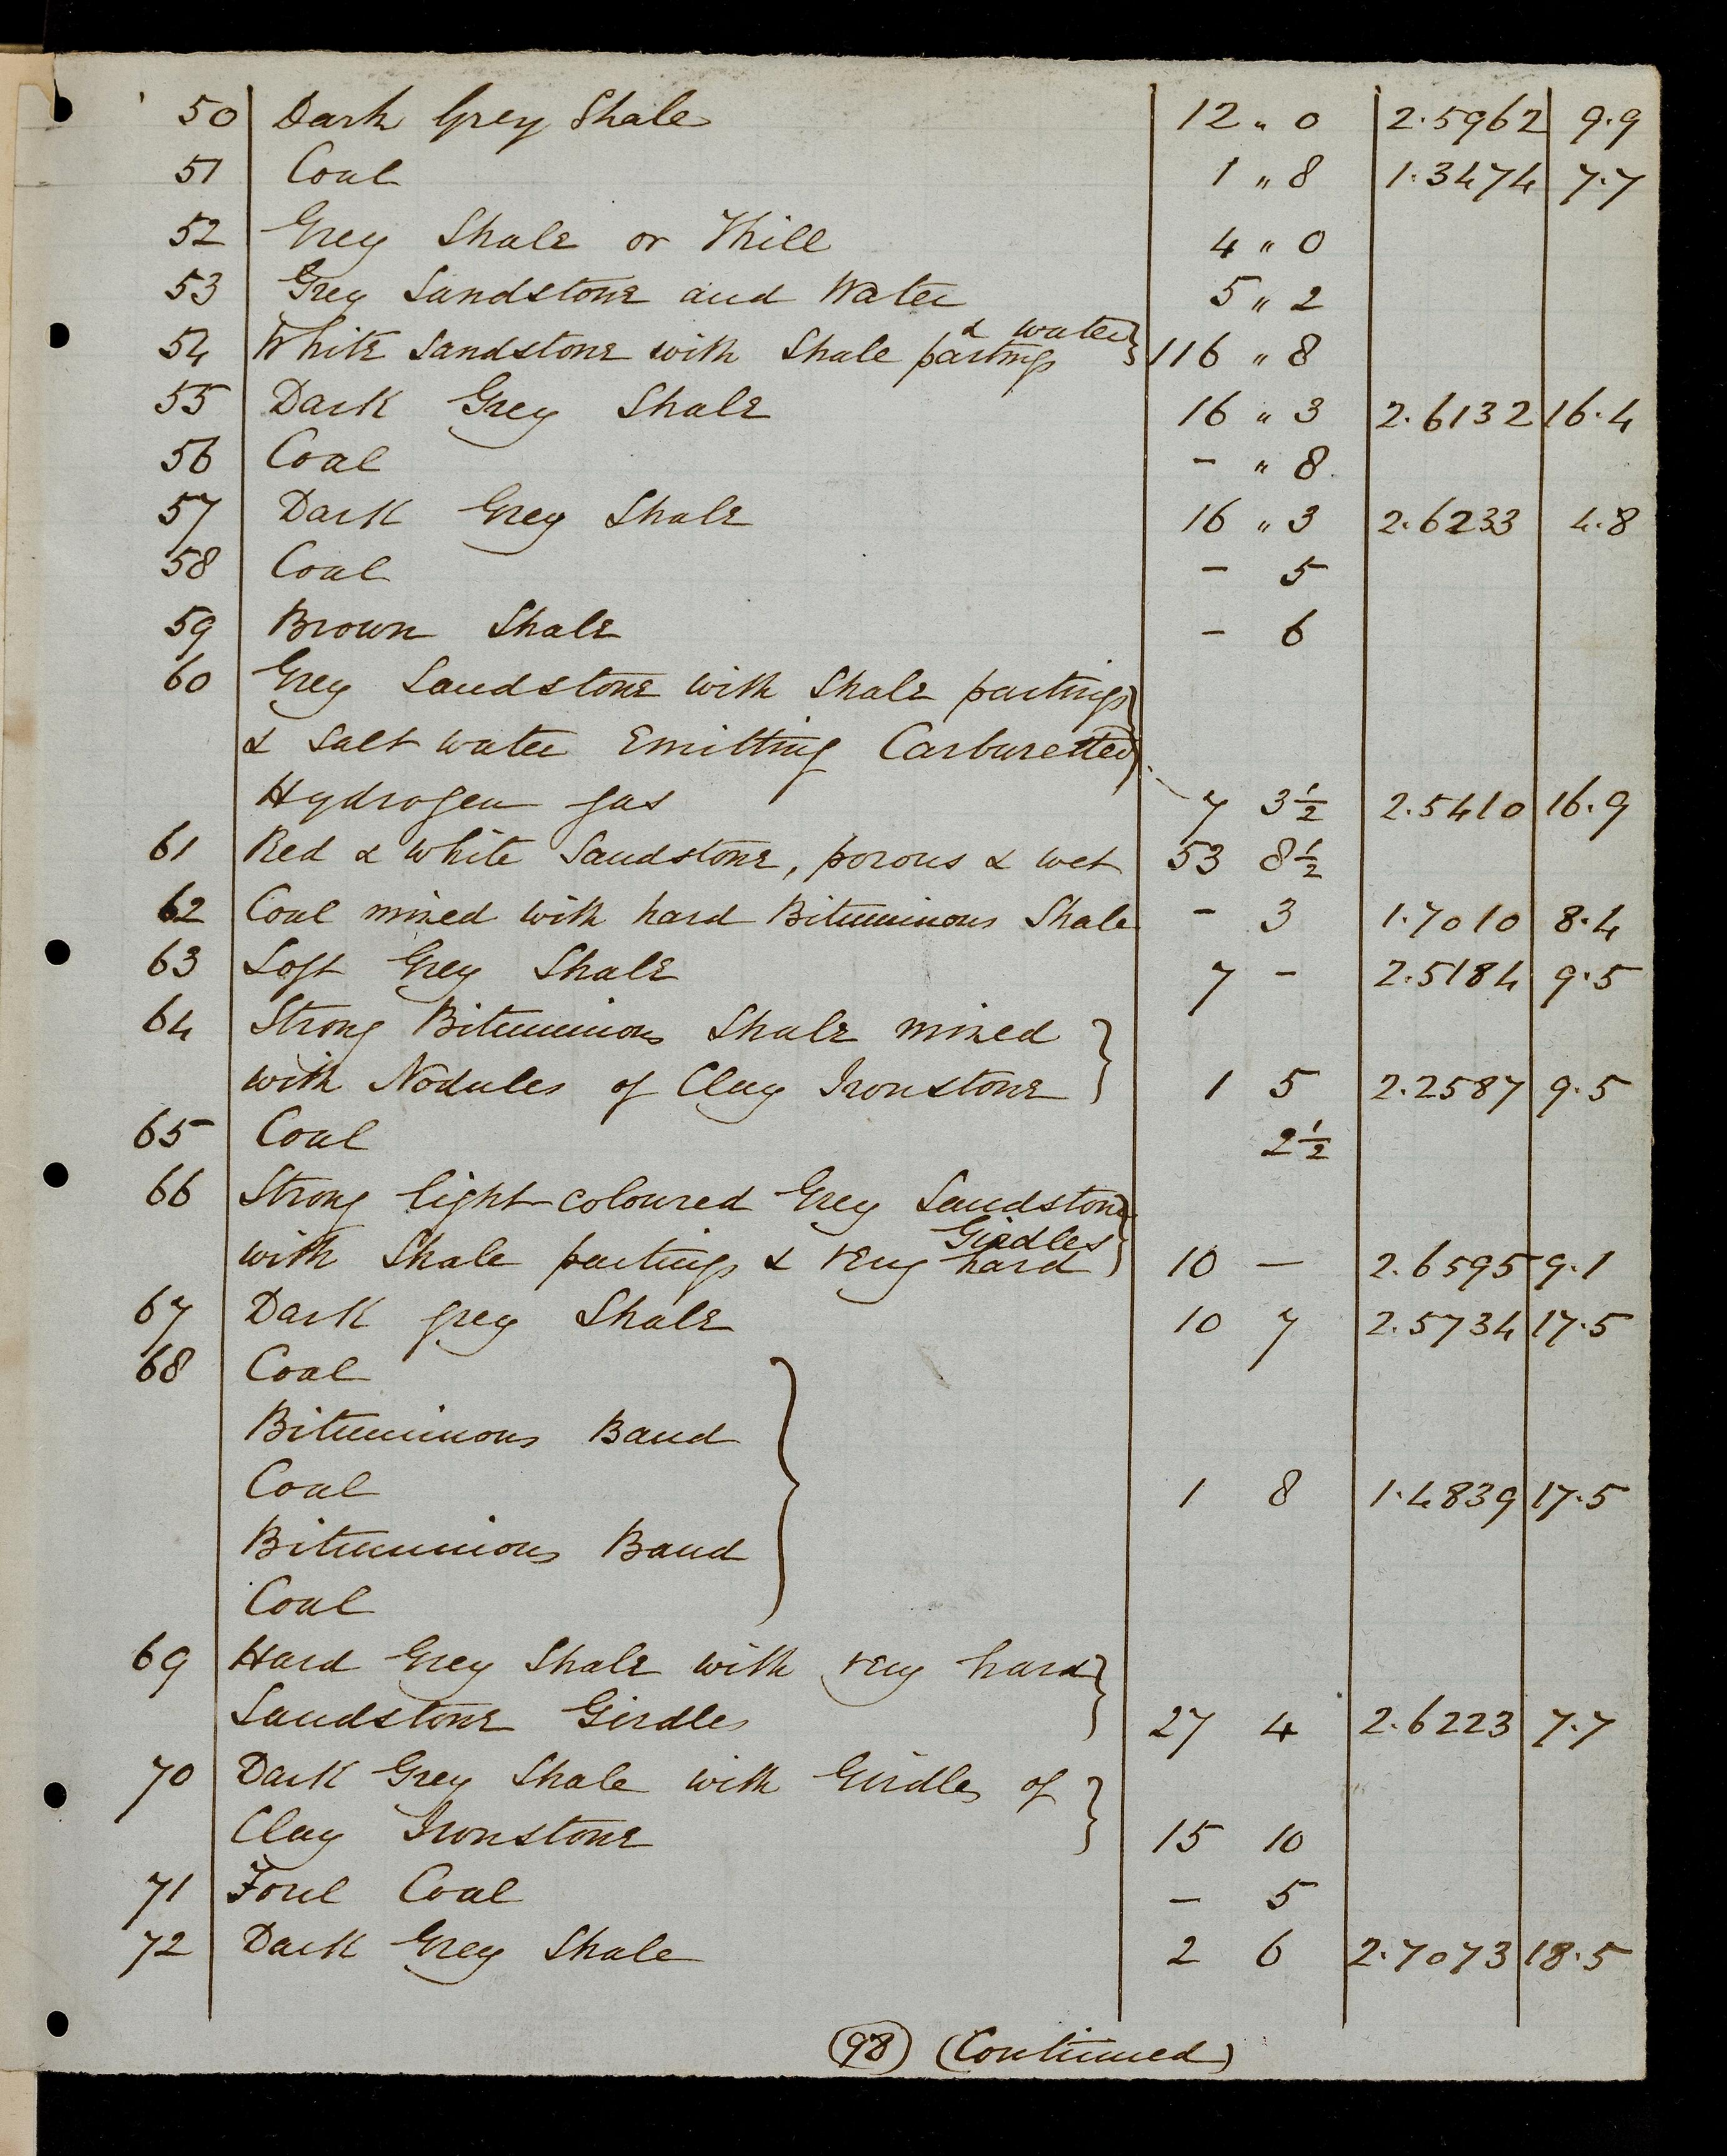 50 Dark Grey Shale 12 " 0 2.5962 9.9
51 Coal 1 " 8 1.3474 7.7
52 Grey Shale or Thill 4 " 0
53 Grey Sandstone and Water 5 " 2
54 White Sandstone with Shale partings & water } 116 " 8
55 Dark Grey Shale 16 " 3 2.6132 16.4
56 Coal - " 8
57 Dark Grey Shale 16 " 3 2.6233 4.8
58 Coal - 5
59 Brown Shale - 6
60 Grey Sandstone with Shale partings
& Salt water Emitting Carburetted
Hydrogen gas 7 3½ 2.5410 16.9
61 Red & White Sandstone, porous & wet 53 8½
62 Coal mixed with hard Bituminous Shale - 3 1.7010 8.4
63 Soft Grey Shale 7 - 2.5184 9.5
64 Strong Bituminous Shale mixed
with Nodules of Clay Ironstone 1 5 2.2587 9.5
65 Coal 2½
66 Strong light-coloured Grey Sandstone
with Shale partings & very hard Girdles 10 - 2.6595 9.1
67 Dark grey Shale 10 7 2.5734 17.5
68 Coal
Bituminous Band
Coal 1 8 1.4839 17.5
Bituminous Band
Coal
69 Hard Grey Shale with very hard
Sandstone Girdles 27 4 2.6223 7.7
70 Dark Grey Shale with Girdles of
Clay Ironstone 15 10
71 Foul Coal - 5
72 Dark Grey Shale 2 6 2.7073 18.5
98 (Continued)